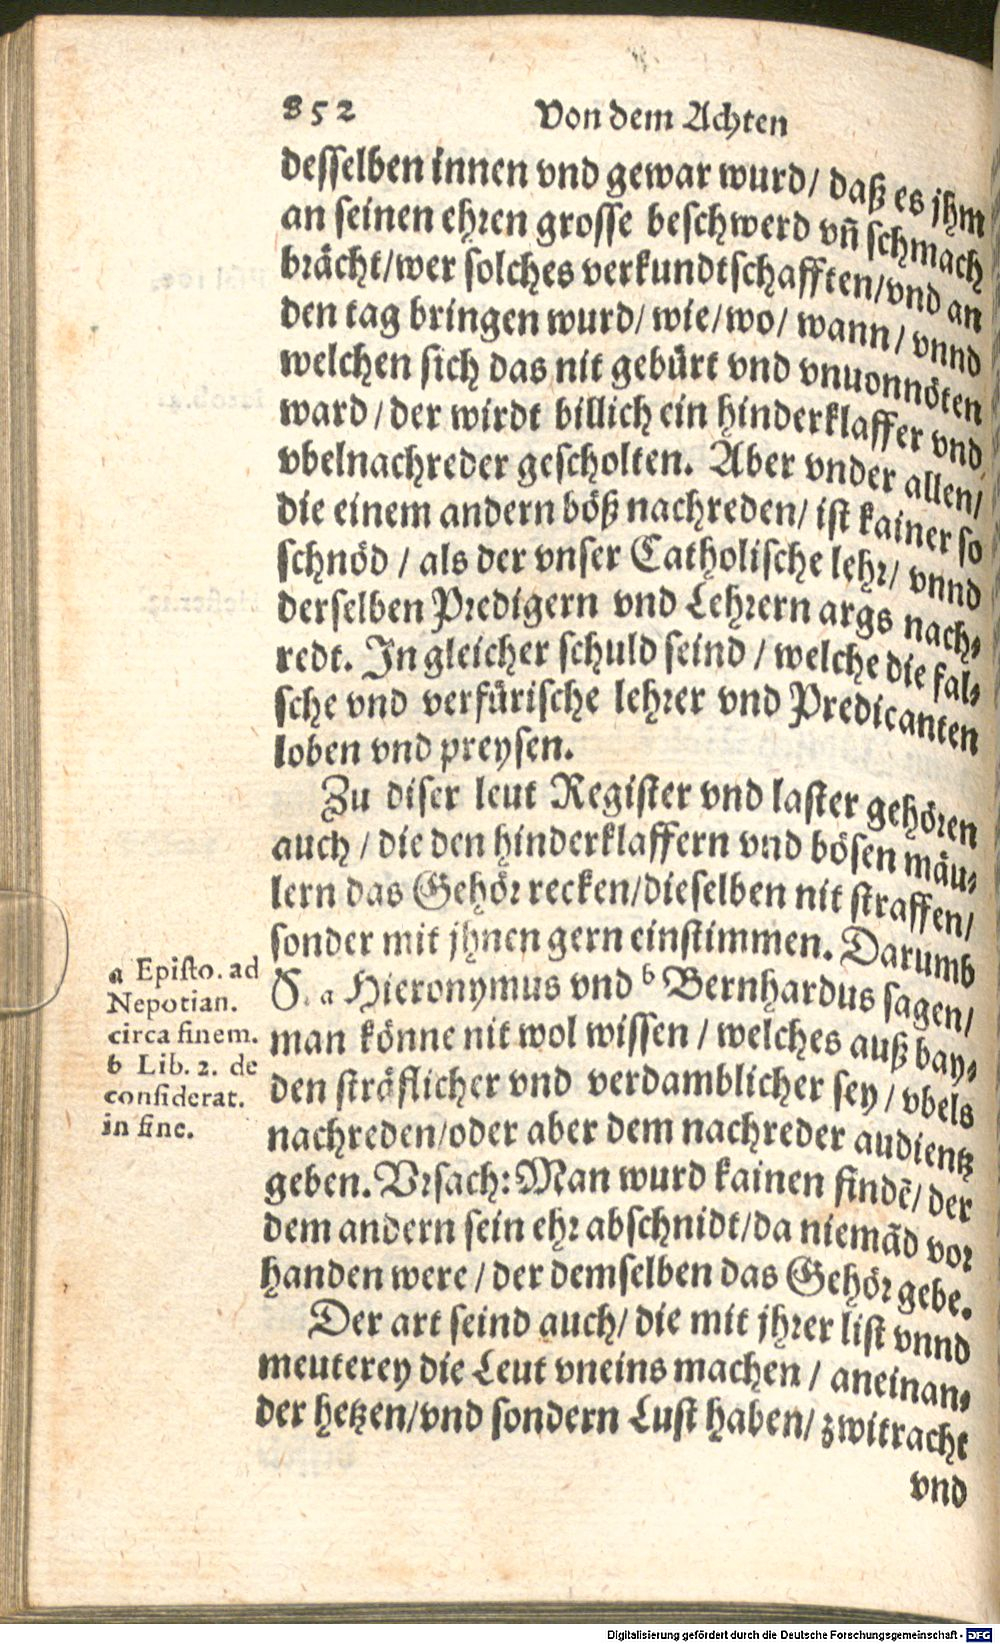 852 Von dem Achten
desselben innen vnd gewar wurd/ daß es jhm
an seinen ehren grosse beschwerd vñ schmach
brächt/wer solches verkundtschafften/vnd an
den tag bringen wurd/ wie/wo/ wann/ vnnd
welchen sich das nit gebürt vnd vnuonnöten
ward/der wirdt billich ein hinderklaffer vnd
vbelnachreder gescholten. Aber vnder allen/
die einem andern böß nachreden/ ist kainer so
schnöd/ als der vnser Catholische lehr/ vnnd
derselben Predigern vnd Lehrern args nach-
redt. In gleicher schuld seind/ welche die fal-
sche vnd verfürische lehrer vnd Predicanten
loben vnd preysen.
Zu diser leut Register vnd laster gehören
auch/ die den hinderklaffern vnd bösen mäu-
lern das Gehör recken/dieselben nit straffen/
sonder mit jhnen gern einstimmen. Darumb
S. a Hieronymus vnd b Bernhardus sagen/
man könne nit wol wissen/ welches auß bay-
den sträflicher vnd verdamblicher sey/ vbels
nachreden/oder aber dem nachreder audientz
geben. Vrsach: Man wurd kainen findē/ der
dem andern sein ehr abschnidt/da niemād vor
handen were/ der demselben das Gehör gebe.
Der art seind auch/ die mit jhrer list vnnd
meuterey die Leut vneins machen/ aneinan-
der hetzen/vnd sondern Lust haben/ zwitracht
vnd
a Episto. ad
Nepotian.
circa finem.
b Lib. 2. de
considerat.
in fine.
Digitalisierung gefördert durch die Deutsche Forschungsgemeinschaft - DFG